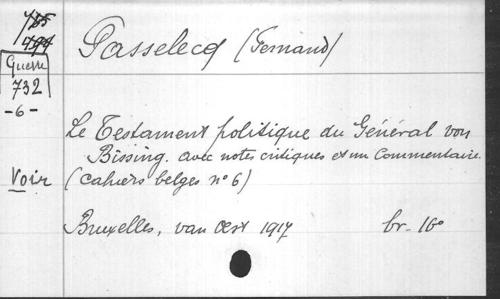 Passelecq (Fernand)
Guerre
732
-6-
Le Testament politique du Général von
Bissing. avec notes critiques et un Commentaire.
Voir
(Cahiers belges n° 6)
Bruxelles, van Oest 1917 br. 16°